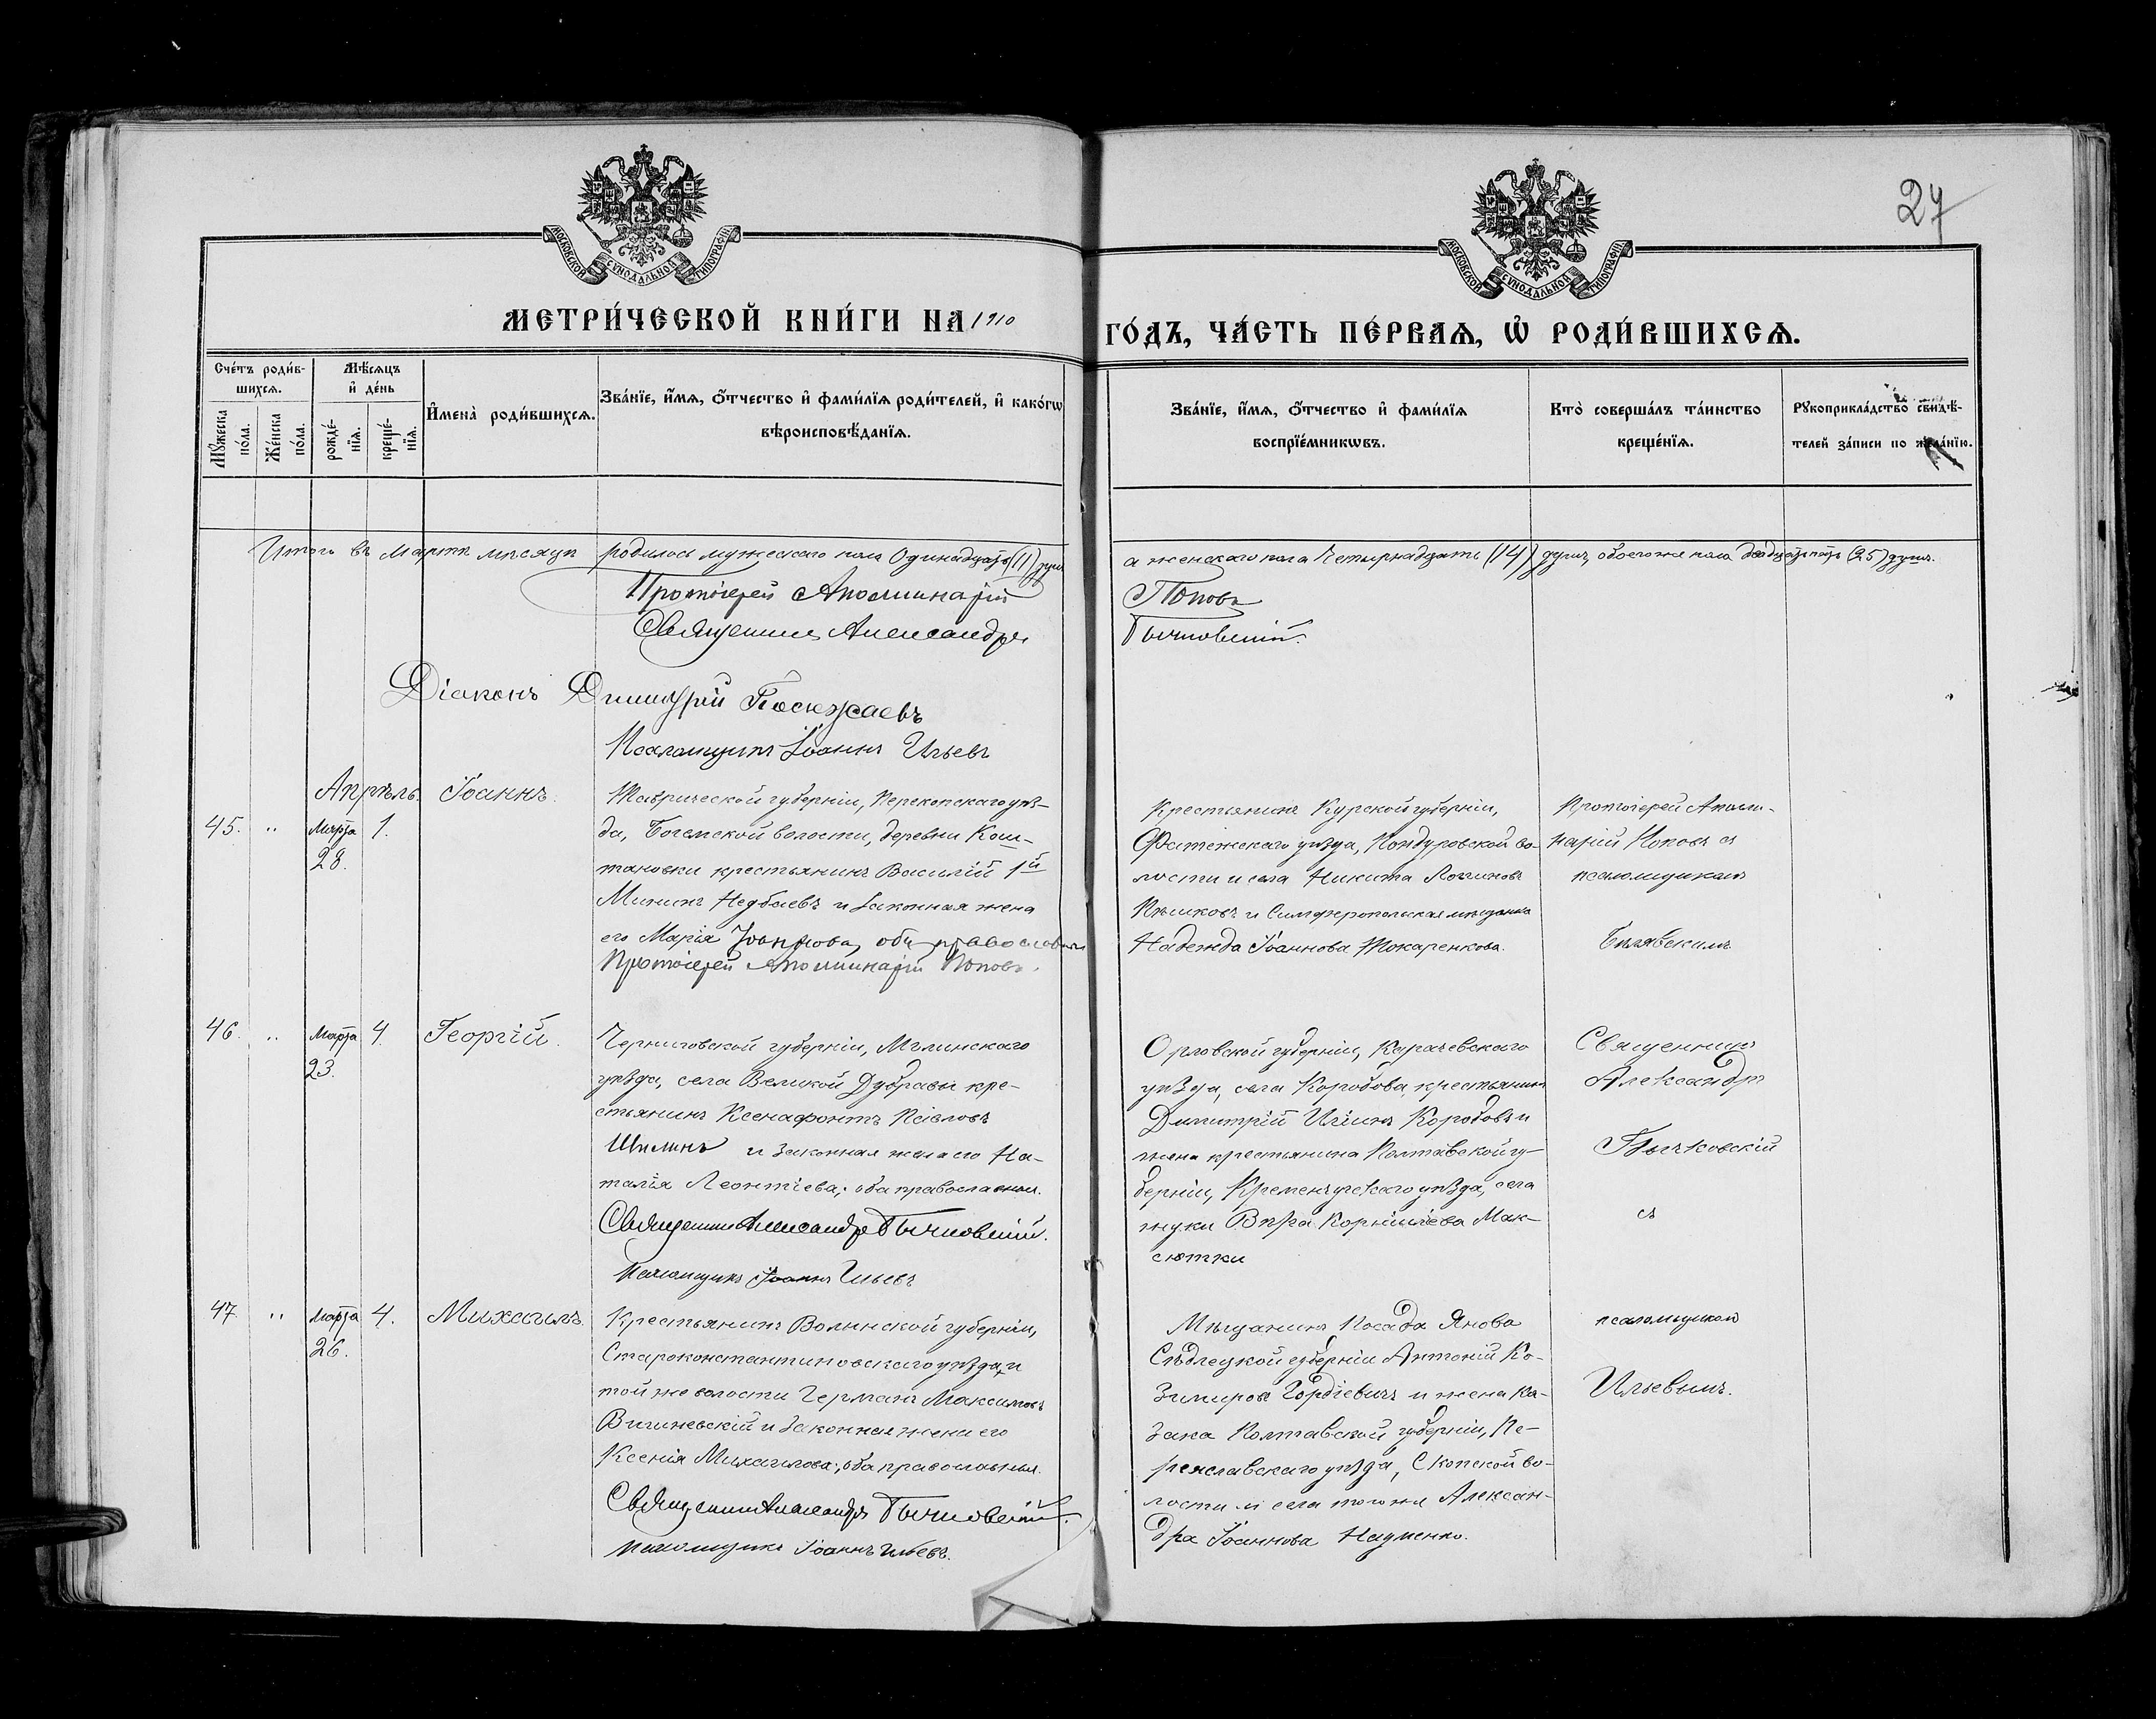 27
МОСКОВСКОЙ СѴНОДАЛЬНОЙ ТИПОГРАФІИ
МОСКОВСКОЙ СѴНОДАЛЬНОЙ ТИПОГРАФІИ
МЕТРИ́ЧЕСКОЙ КНИ́ГИ НА 1910 ГО́ДЪ, ЧА́СТЬ ПЕ́РВАѦ, Ѡ҆ РОДИ́ВШИХСѦ.
Сче́тъ роди́в-
шихсѧ.
Мꙋ́жеска по́ла.
Же́нска по́ла.
Мѣ́сѧцъ
и҆ де́нь
рожде́-
нїѧ.
креще́-
нїѧ.
И҆мена̀ роди́вшихсѧ.
Зва́нїе, и҆́мѧ, ѻ҆́тчество и҆ фами́лїѧ роди́телей, и҆ како́гѡ
вѣроисповѣ́данїѧ.
Зва́нїе, и҆́мѧ, ѻ҆́тчество и҆ фами́лїѧ
воспрїе́мникѡвъ.
Кто̀ соверша́лъ та́инство
креще́нїѧ.
Рꙋкоприкла́дство свидѣ́-
телей за́писи по жела́нїю.
Итого въ Мартѣ мѣсяцѣ родилось мужескаго пола Одинадцать (11) душъ
а женскаго пола Четырнадцать (14) душъ, обоего же пола двадцать пять (25) душъ.
Протоіерей Аполлинарій Поповъ
Священникъ Александръ Бычковскій.
Діаконъ Димитрій
Псаломщикъ Іоаннъ Ильевъ
Апрѣль.
45. " Марта 28. 1. Іоаннъ.
Таврической губерніи, Перекопскаго уѣз-
да, Богемской волости, деревни Кош-
тановки крестьянинъ Василій 1й
Мининъ Недбаевъ и законная жена
его Марія Іоаннова, оба православные
Протоіерей Аполлинарій Поповъ.
Крестьянинъ Курской губерніи,
Фатежскаго уѣзда, Кондуровской во-
лости и села Никита Логиновъ
и Симферопольская мѣщанка
Надежда Іоаннова Токаренкова.
Протоіерей Аполли-
нарій Поповъ съ
псаломщикомъ
Билявскимъ
46. " Марта 23. 4. Георгій.
Черниговской губерніи, Мглинскаго
уѣзда, села Великой Дубравы кре-
стьянинъ Ксенафонтъ
Шилинъ и законная жена его На-
талія Леонтіева; оба православные.
Священникъ Александръ Бычковскій.
Псаломщикъ Іоаннъ Ильевъ
Орловской губерніи, Карачевскаго
уѣзда, села Коробова, крестьянинъ
Димитрій Иліинъ Коробовъ и
жена крестьянина Полтавской гу-
берніи, Кременчугскаго уѣзда, села
Жуки Вѣра Корниліева Мак-
сютки
Священникъ
Александръ
Бычковскій
съ
47 " Марта 26. 4. Михаилъ.
Крестьянинъ Волынской губерніи,
Староконстантиновскаго уѣзда, и
той же волости Германъ Максимовъ
и законная жена его
Ксенія Михаилова; оба православные.
Священникъ Александръ Бычковскій.
Псаломщикъ Іоаннъ Ильевъ.
Мѣщанинъ Посада Янова
Сѣдлецкой губерніи Антоній Ко-
зимировъ Гордіевичъ и жена ка-
зака Полтавской губерніи, Пе-
реяславскаго уѣзда, Скопской во-
лости и села того же Алексан-
дра Іоаннова Науменко.
псаломщикомъ
Ильевымъ.